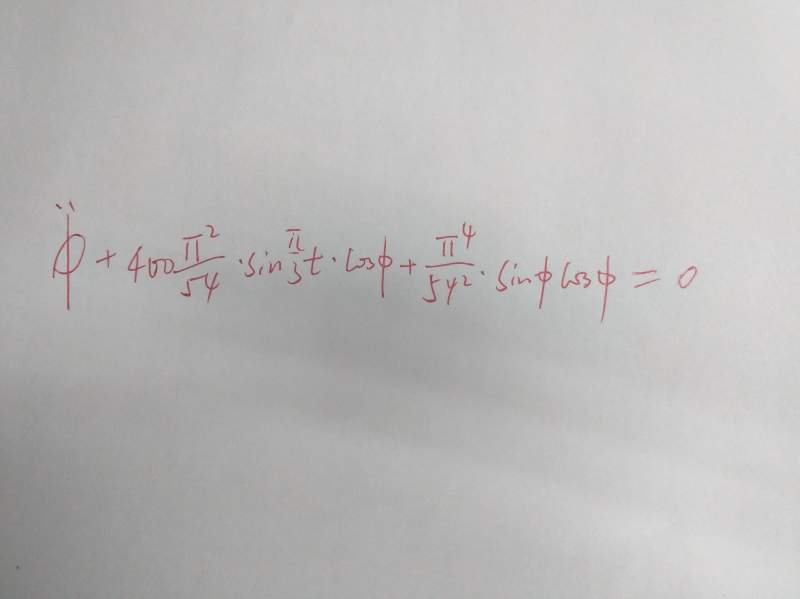 $\ddot{\phi} + 400\frac{\pi^2}{54} \cdot \sin\frac{\pi}{3}t \cdot \cos\phi + \frac{\pi^4}{54^2} \cdot \sin\phi\cos\phi = 0$